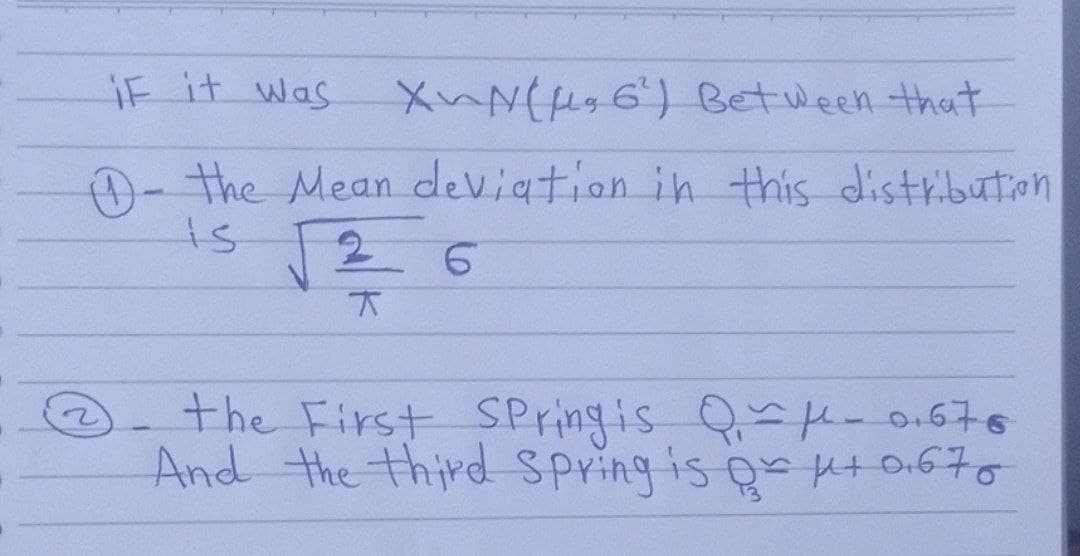 iF it was X~N(μ, б²) Between that
①- the Mean deviation in this distribution
is √(2/π) б
②- the First Springis Q₁ ≃ μ - 0.67б
And the third Spring is Q₃ ≃ μ + 0.67σ